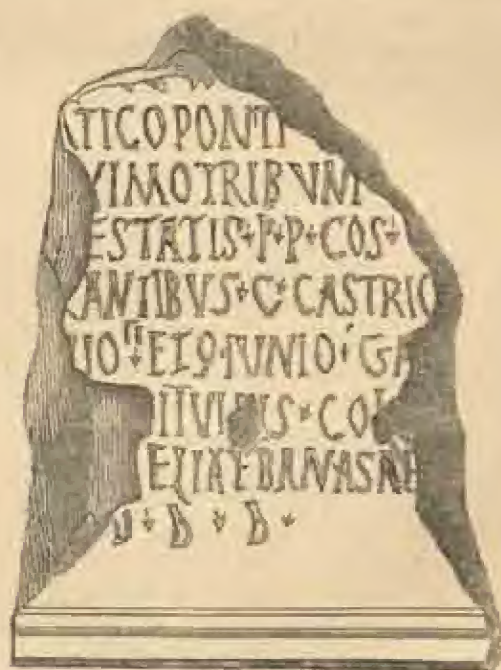 ATICO PONTI
XIMO TRIBVNI
ESTATIS P P COS
ANTIBVS C CASTRIC
ET Q IVNIO GA
IIVIRIS COL
ELIAE BANASAE
D B B